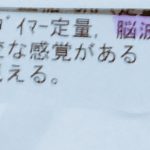 ﾀﾞｲﾏｰ定量, 脳波
変な感覚がある
見える。